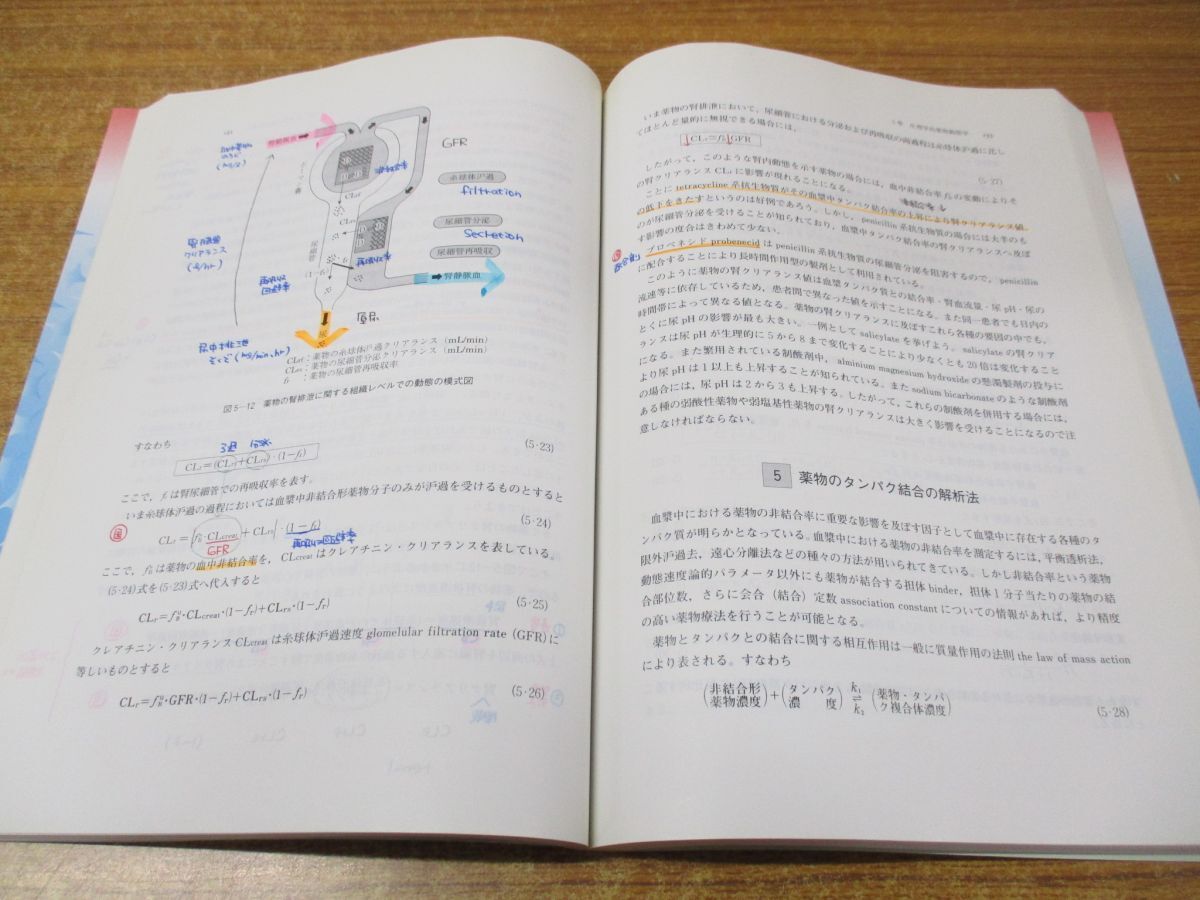 腎動脈血
GFR
糸球体沪過
filtration
尿細管分泌
Secretion
尿細管再吸収
腎静脈血
尿細管
再吸収率
再吸収
回避率
(1-fr)
尿
原尿
腎臓
クリアランス
尿中排泄
CLrf：薬物の糸球体沪過クリアランス（mL/min）
CLrs：薬物の尿細管分泌クリアランス（mL/min）
fr：薬物の尿細管再吸収率
図5-12　薬物の腎排泄に関する組織レベルでの動態の模式図
すなわち
CLr=(CLrf+CLrs)·(1-fr)
(5·23)
ここで，frは腎尿細管での再吸収率を表す。
いま糸球体沪過の過程においては血漿中非結合形薬物分子のみが沪過を受けるものとすると
(5·24)
GFR
再吸収回避率
ここで，fは薬物の血中非結合率を，CLcreatはクレアチニン・クリアランスを表している。
(5·24)式を(5·23)式へ代入すると
CLr=fᵘB·CLcreat·(1-fr)+CLrs·(1-fr)
(5·25)
クレアチニン・クリアランスCLcreatは糸球体沪過速度 glomelular filtration rate（GFR）に
等しいものとすると
CLr=fᵘB·GFR·(1-fr)+CLrs·(1-fr)
(5·26)
いま薬物の腎排泄において，尿細管における分泌および再吸収の両過程は糸球体沪過に比し
てほとんど量的に無視できる場合には，
(5·27)
したがって，このような腎内動態を示す薬物の場合には，血中非結合率fの変動によりそ
の腎クリアランスCLrに影響が現れることになる。
ことに tetracycline 系抗生物質がその血漿中タンパク結合率の上昇により腎クリアランス値
の低下をきたすというのは好例であろう。しかし，penicillin系抗生物質の場合には大半のも
のが尿細管分泌を受けることが知られており，血漿中タンパク結合率の腎クリアランスへ及ぼ
す影響の度合はきわめて少ない。
プロベネシド probenecid は penicillin 系抗生物質の尿細管分泌を阻害するので，penicillin
に配合することにより長時間作用型の製剤として利用されている。
このように薬物の腎クリアランス値は血漿タンパク質との結合率・腎血流量・尿pH・尿の
流速等に依存しているため，患者間で異なった値を示すことになる。また同一患者でも日内の
時間帯によって異なる値となる。薬物の腎クリアランスに及ぼすこれら各種の要因の中でも，
とくに尿pHの影響が最も大きい。一例として salicylate を挙げよう。salicylate の腎クリア
ランスは尿pHが生理的に5から8まで変化することにより少なくとも20倍は変化すること
になる。また繁用されている制酸剤中，alminium magnesium hydroxide の懸濁製剤の投与に
より尿pHは1以上も上昇することが知られている。また sodium bicarbonate のような制酸剤
の場合には，尿pHは2から3も上昇する。したがって，これらの制酸剤を併用する場合には，
ある種の弱酸性薬物や弱塩基性薬物の腎クリアランスは大きく影響を受けることになるので注
意しなければならない。
5　薬物のタンパク結合の解析法
血漿中における薬物の非結合率に重要な影響を及ぼす因子として血漿中に存在する各種のタ
ンパク質が明らかとなっている。血漿中における薬物の非結合率を測定するには，平衡透析法，
限外沪過法，遠心分離法などの種々の方法が用いられてきている。しかし非結合率という薬物
動態速度論的パラメータ以外にも薬物が結合する担体 binder，担体1分子当たりの薬物の結
合部位数，さらに会合（結合）定数 association constant についての情報があれば，より精度
の高い薬物療法を行うことが可能となる。
薬物とタンパクとの結合に関する相互作用は一般に質量作用の法則 the law of mass action
により表される。すなわち
(非結合形薬物濃度)+(タンパク濃度) k₁⇌k₂ (薬物・タンパク複合体濃度)
(5·28)